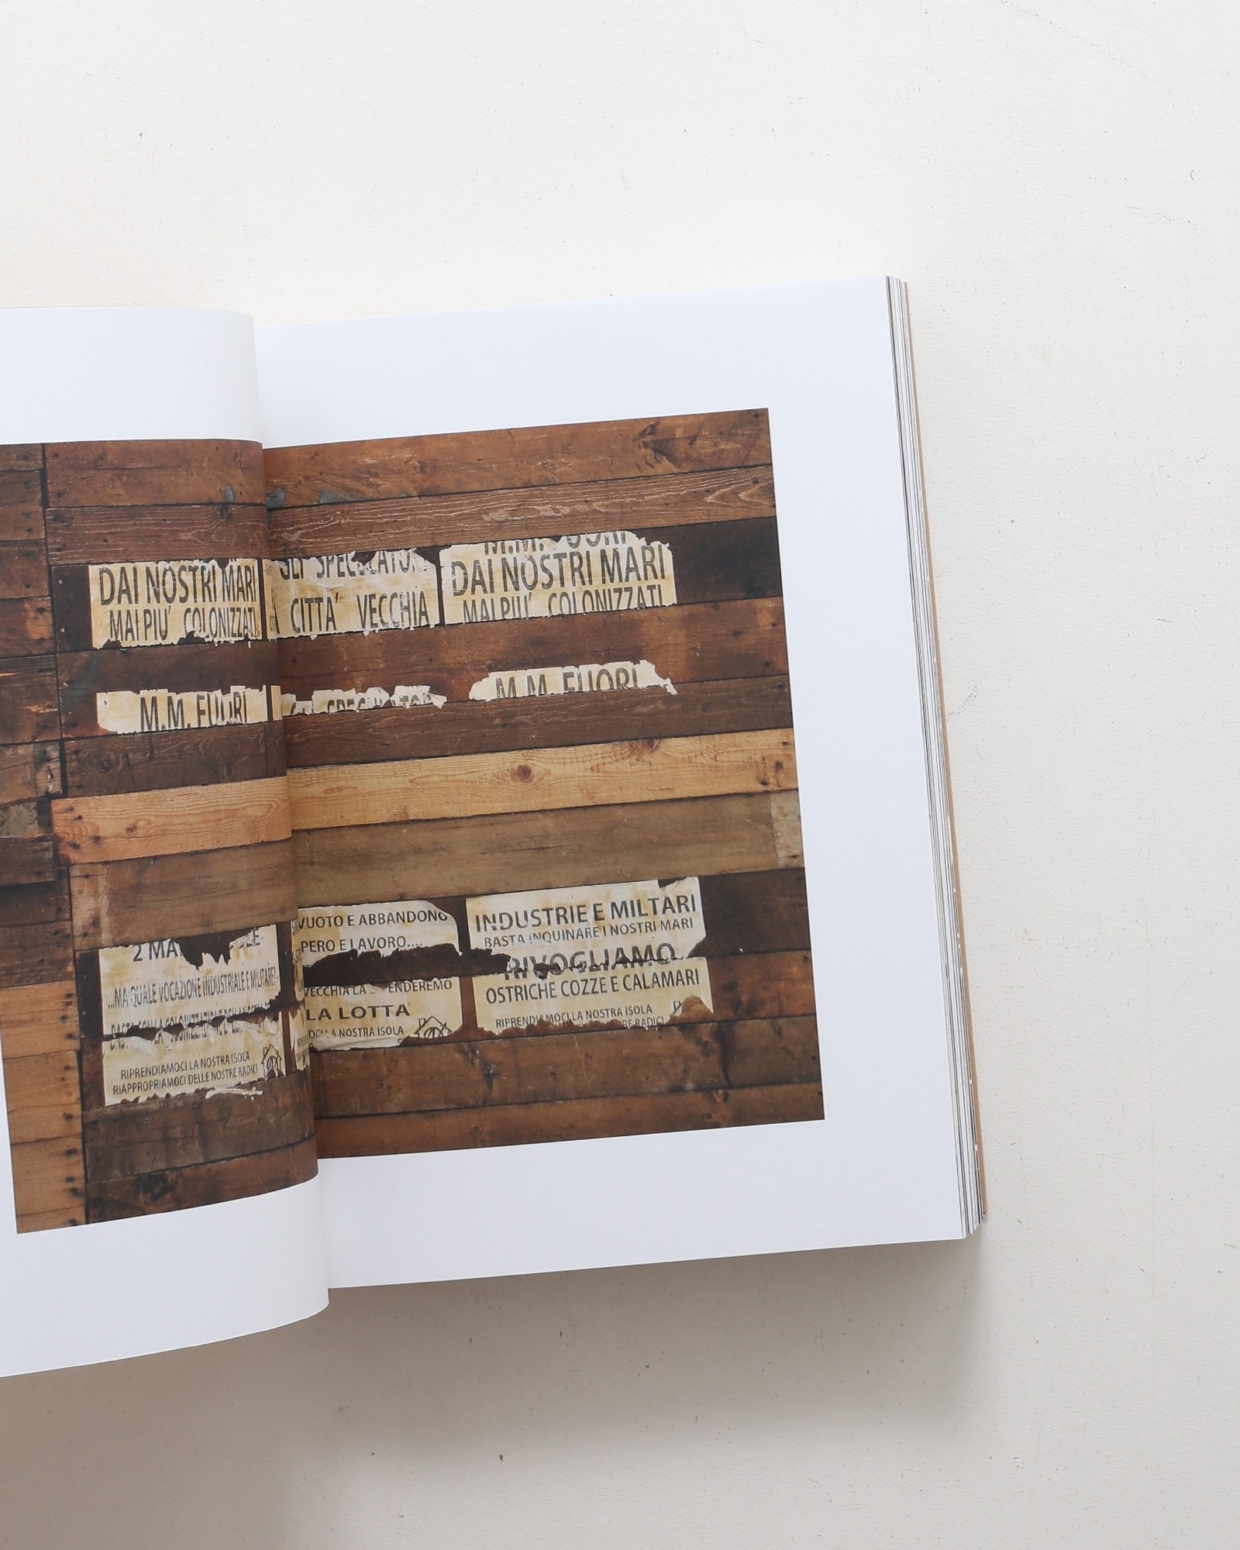 DAI NOSTRI MARI
MAI PIU' COLONIZZATI
M.M. FUORI
CITTA' VECCHIA
M.M. FUORI
DAI NOSTRI MARI
MAI PIU' COLONIZZATI
M.M. FUORI
2
...MA QUALE VOCAZIONE INDUSTRIALE E MILITARE?
RIPRENDIAMOCI LA NOSTRA ISOLA
RIAPPROPRIAMOCI DELLE NOSTRE RADICI
VUOTO E ABBANDONO
PERO E LAVORO....
VECCHIA LA
LA LOTTA
LA NOSTRA ISOLA
INDUSTRIE E MILTARI
BASTA INQUINARE I NOSTRI MARI
RIVOGLIAMO
OSTRICHE COZZE E CALAMARI
RIPRENDIAMOCI LA NOSTRA ISOLA